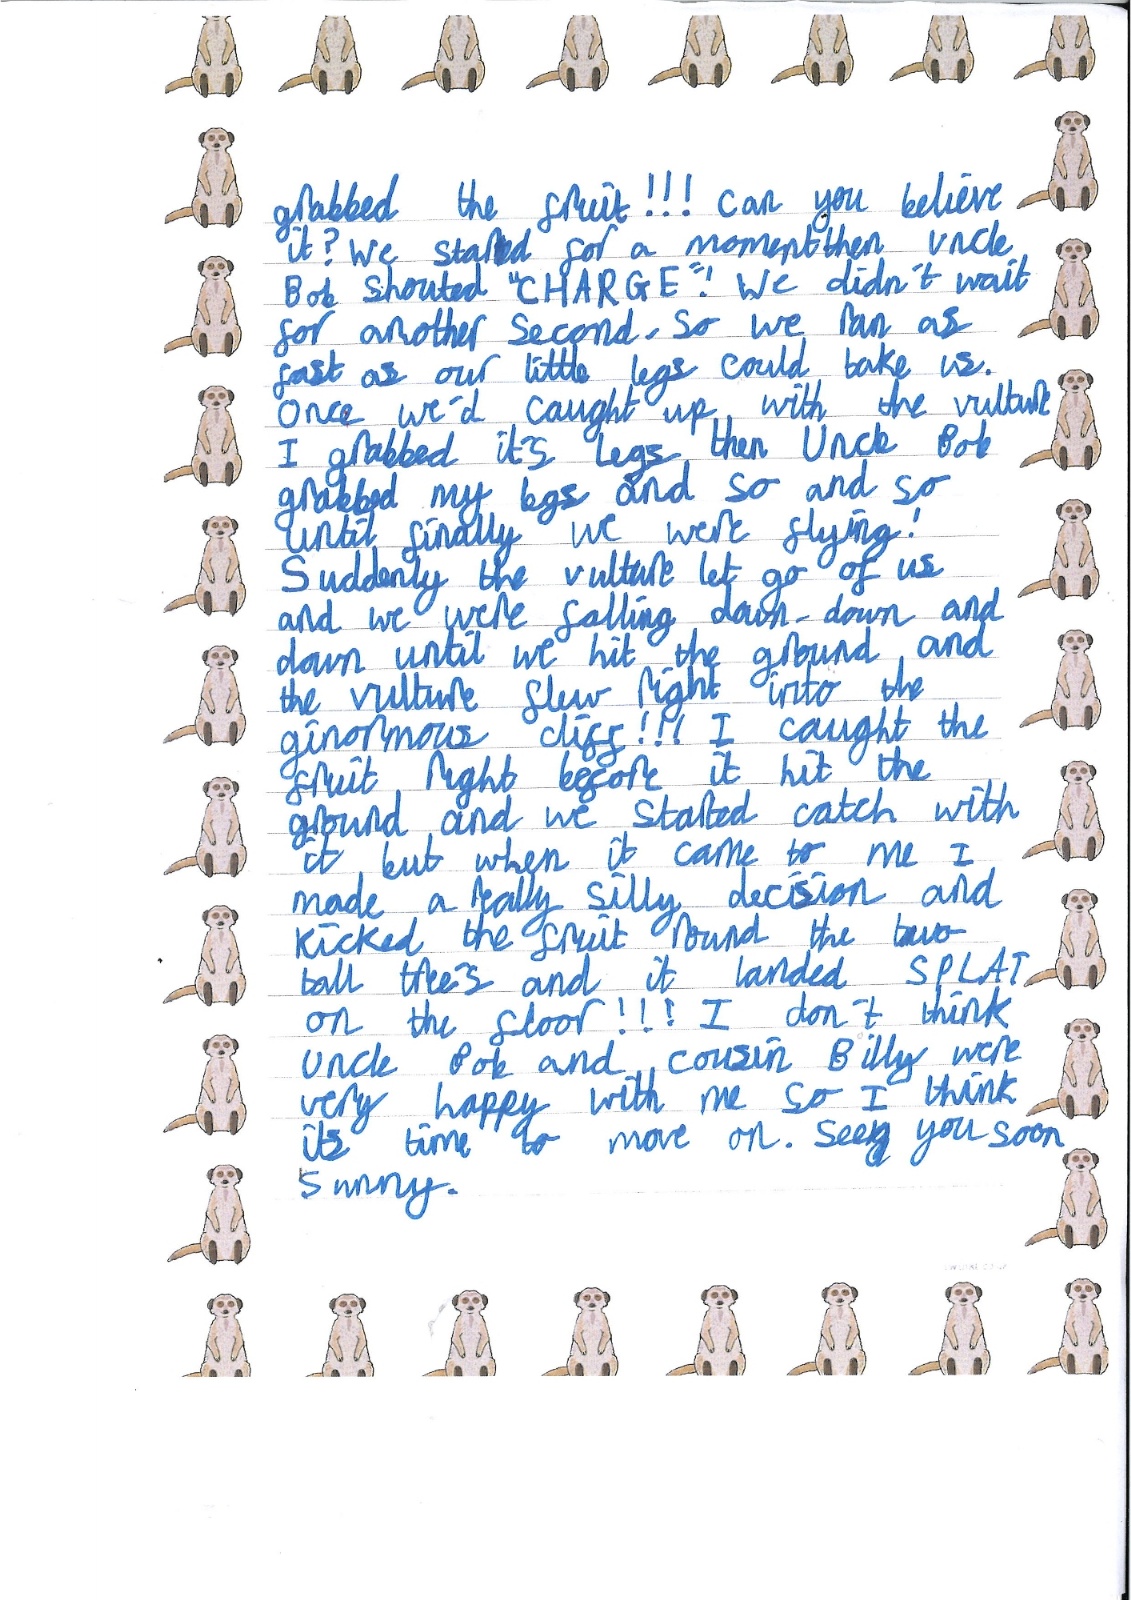 grabbed the fruit!!! Can you believe
it? We stared for a moment then Uncle
Bob Shouted "CHARGE"! We didn't wait
for another Second. So we ran as
fast as our little legs could take us.
Once we'd caught up with the vulture
I grabbed it's legs then Uncle Bob
grabbed my legs and so and so
until finally we were flying!
Suddenly the vulture let go of us
and we were falling down-down and
down until we hit the ground and
the vulture flew right into the
ginormous cliff!!! I caught the
fruit right before it hit the
ground and we started catch with
it but when it came to me I
made a really silly decision and
kicked the fruit round the two
tall tree's and it landed SPLAT
on the floor!!! I don't think
Uncle Bob and cousin Billy were
very happy with me so I think
its time to move on. See you soon
Sunny.